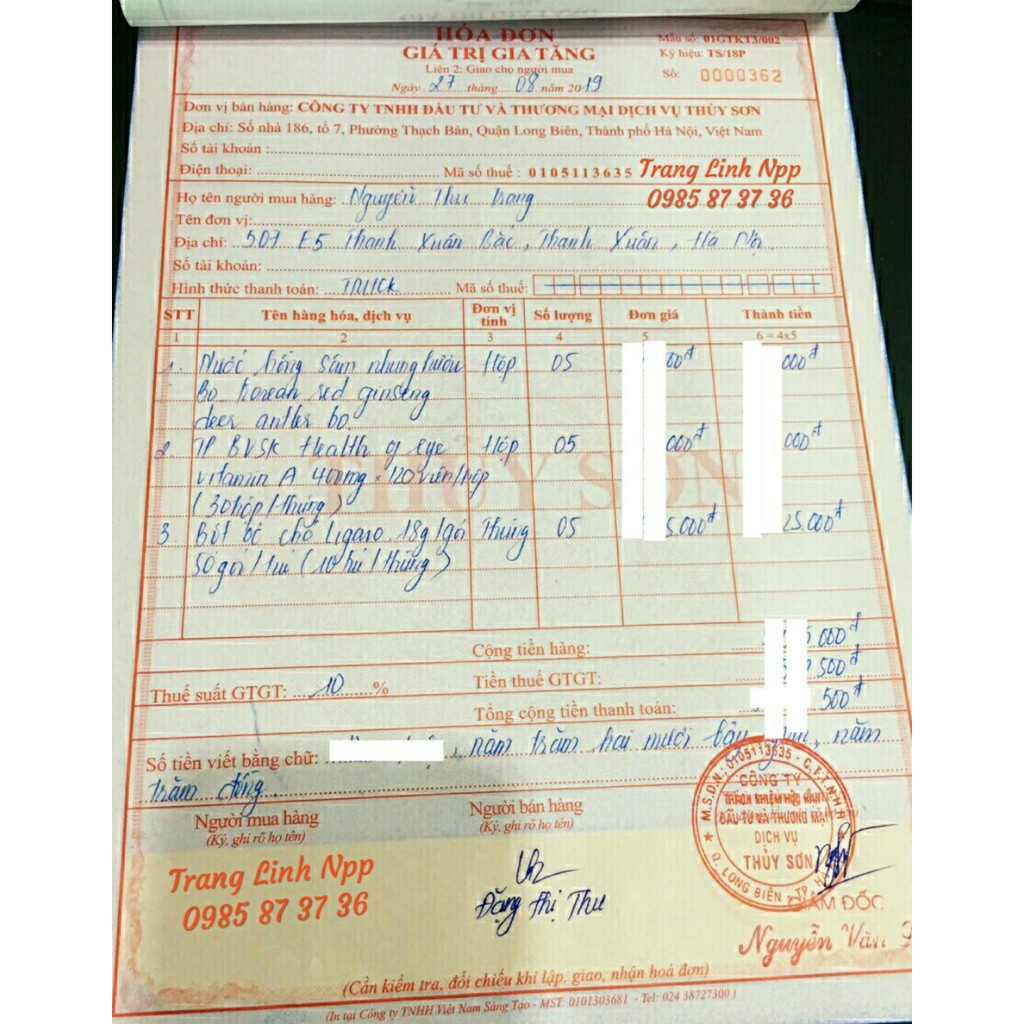 HÓA ĐƠN
GIÁ TRỊ GIA TĂNG
Liên 2: Giao cho người mua
Ngày 27 tháng 08 năm 2019
Mẫu số: 01GTKT3/002
Ký hiệu: TS/18P
Số: 0000362
Đơn vị bán hàng: CÔNG TY TNHH ĐẦU TƯ VÀ THƯƠNG MẠI DỊCH VỤ THỦY SƠN
Địa chỉ: Số nhà 186, tổ 7, Phường Thạch Bàn, Quận Long Biên, Thành phố Hà Nội, Việt Nam
Số tài khoản:
Điện thoại: Mã số thuế: 0105113635
Trang Linh Npp
0985 87 37 36
Họ tên người mua hàng: Nguyễn Thu Trang
Tên đơn vị:
Địa chỉ: 507 E5 Thanh Xuân Bắc, Thanh Xuân, Hà Nội
Số tài khoản:
Hình thức thanh toán: TM/CK Mã số thuế:
STT Tên hàng hóa, dịch vụ Đơn vị tính Số lượng Đơn giá Thành tiền
1 2 3 4 5 6 = 4x5
1. Nước hồng sâm nhung hươu Hộp 05 000đ 000đ
Bo Korean red ginseng
deer antler bo.
2. TP BVSK Health of eye Hộp 05 000đ 000đ
vitamin A 400mg x 120 viên/hộp
(30 hộp/thùng)
3. Bột óc chó Ligaro 18g/gói Thùng 05 5.000đ 25.000đ
50 gói/túi (10 túi/thùng)
THỦY SƠN
Cộng tiền hàng: 5.000đ
Thuế suất GTGT: 10 % Tiền thuế GTGT: 500đ
Tổng cộng tiền thanh toán: 500đ
Số tiền viết bằng chữ: , năm trăm hai mươi bảy , năm
trăm đồng.
Người mua hàng
(Ký, ghi rõ họ tên)
Người bán hàng
(Ký, ghi rõ họ tên)
Trang Linh Npp
0985 87 37 36
Đặng Thị Thu
M.S.D.N: 0105113635 - C.T.T.N.H.H
CÔNG TY
TRÁCH NHIỆM HỮU HẠN
ĐẦU TƯ VÀ THƯƠNG MẠI
DỊCH VỤ
THỦY SƠN
Q. LONG BIÊN - TP. HÀ
GIÁM ĐỐC
Nguyễn Văn
(Cần kiểm tra, đối chiếu khi lập, giao, nhận hoá đơn)
(In tại Công ty TNHH Việt Nam Sáng Tạo - MST: 0101303681 - Tel: 024 38727300)